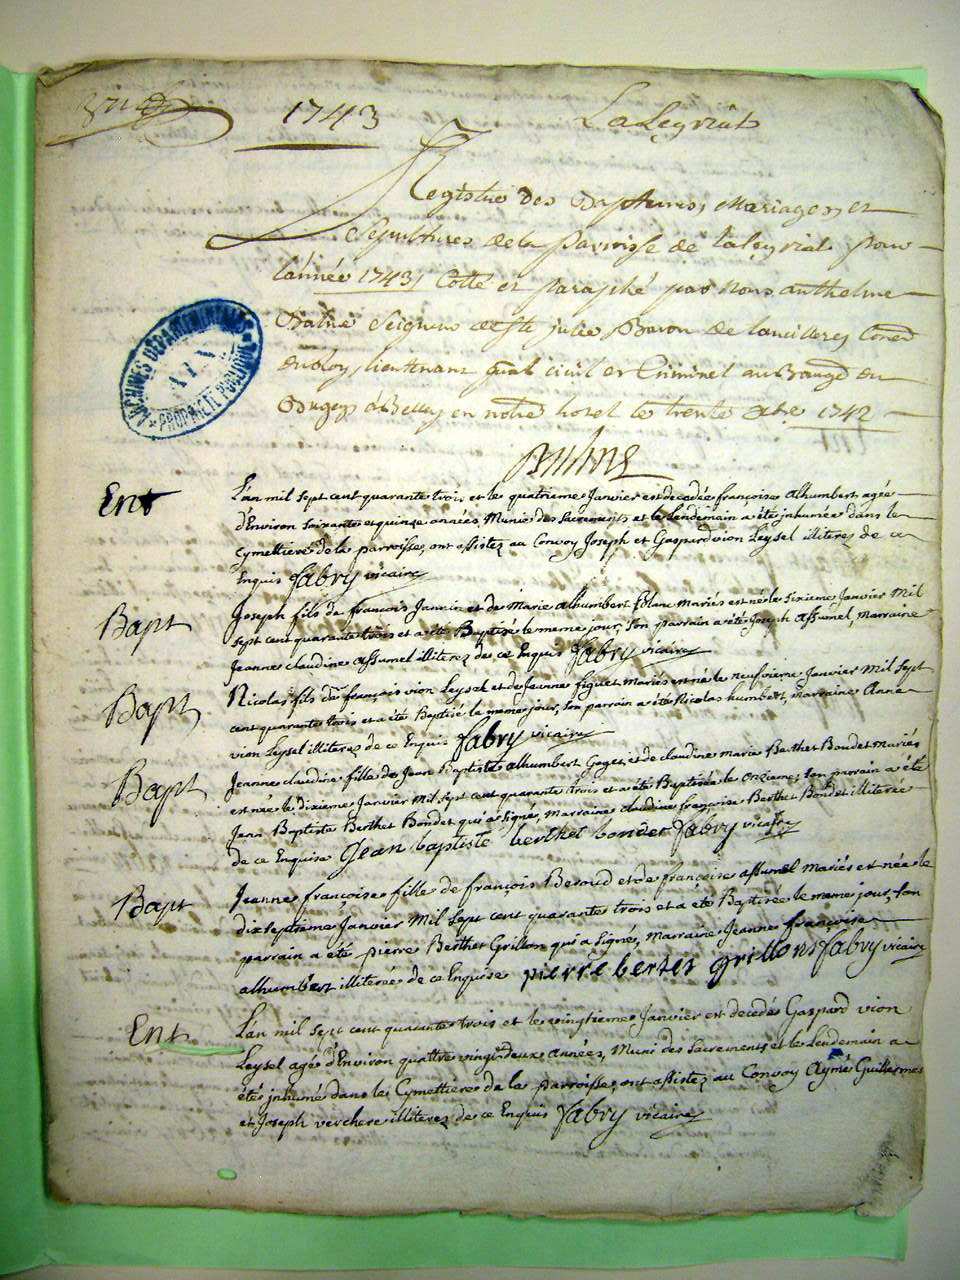 1743
LaLeyriat
Registre des Baptemes, Mariages, et
Sepultures de la parroisse de Laleyriat pour
l'année 1743, Cotté et paraphé par Nous anthelme
Seigneur de Ste julie Baron de
du Roy, lieutenant gnal civil et Criminel au
Bugey à Belley en notre hotel le trente xbre 1742
ARCHIVES DEPARTEMENTALES
AIN
PROPRIETE PUBLIQUE
Ent
L'an mil sept cent quarante trois et le quatrieme Janvier est decedée françoise alhumbert agée
d'Environ soixante et quinze années, Munie des Sacrements et le Lendemain a été inhumée dans le
Cymettiere de la parroisse, ont assistez au Convoy Joseph et Gaspard vion Leysel illiterez de ce
Enquis fabry vicaire
Bapt
Joseph fils de françois Jannin et de Marie alhumbert mariés est né le sixieme Janvier Mil
sept cent quarante trois et a été Baptisé le meme jour, son parrain a été Joseph assumel, marraine
Jeanne claudine assumel illiterez de ce Enquis fabry vicaire
Bapt
Nicolas fils de françois vion Leysel et de Jeanne mariés est né le neufvieme Janvier Mil sept
cent quarante trois et a été Baptisé le meme jour, son parrain a été Nicolas humbert, marraine Anne
vion Leysel illiterez de ce Enquis fabry vicaire
Bapt
Jeanne claudine fille de Jean Baptiste alhumbert Goget et de claudine marie Berthet Bondet mariés
est née le dixieme Janvier Mil sept cent quarante trois et a été Baptisée le onzieme, son parrain a été
Jean Baptiste Berthet Bondet qui a signé, marraine claudine françoise Berthet Bondet illiterée
de ce Enquise Jean baptiste berthet bondet fabry vicaire
Bapt
Jeanne françoise fille de françois Beroud et de françoise assumel Mariés est née le
dixseptieme Janvier Mil sept cent quarante trois et a été Baptisée le meme jour, son
parrain a été pierre Berthet Grillon qui a signé, Marraine Jeanne françoise
alhumbert illiterée de ce Enquise pierre bertet grillon fabry vicaire
Ent
L'an mil sept cent quarante trois et le vingtieme Janvier est decedé Gaspard vion
Leysel agé d'Environ quattre vingt deux années, Muni des Sacrements et le Lendemain a
été inhumé dans le Cymettiere de la parroisse, ont assistez au Convoy Aymé Guillermet
et Joseph verchere illiterez de ce Enquis fabry vicaire